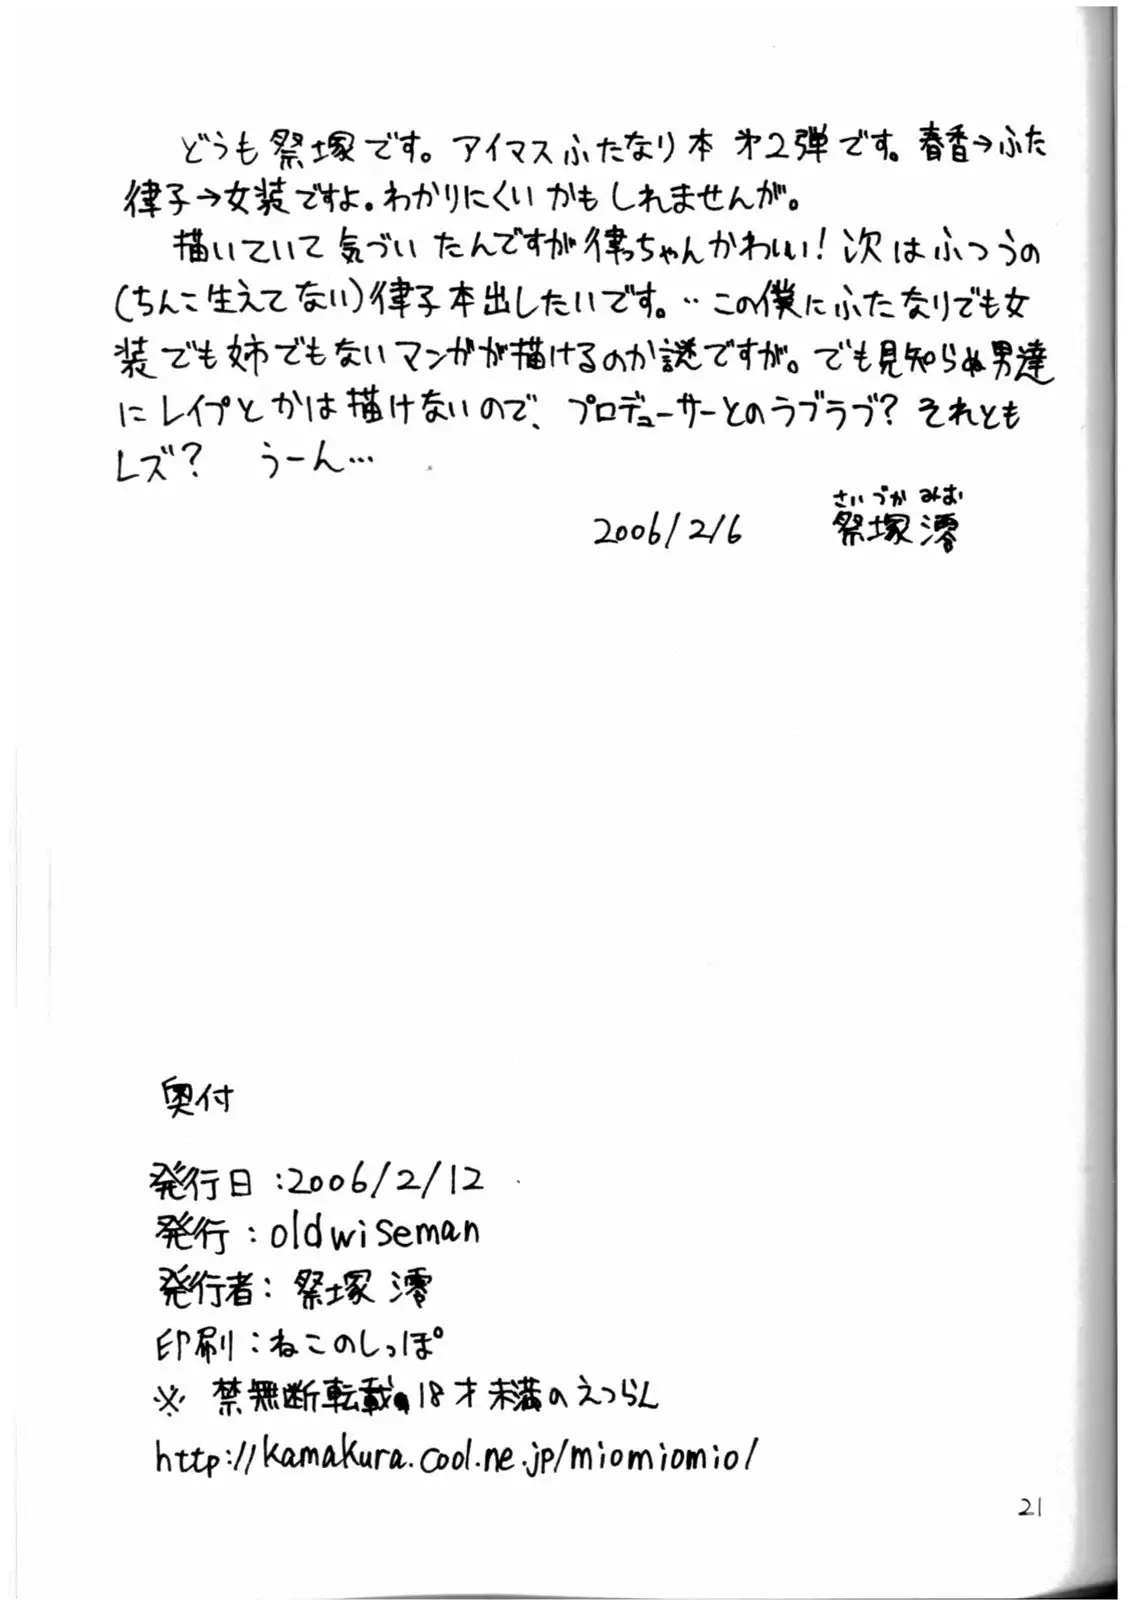 どうも祭塚です。アイマスふたなり本 第2弾です。春香→ふた
律子→女装ですよ。わかりにくいかもしれませんが。
描いていて気づいたんですが律っちゃんかわいい!次はふつうの
(ちんこ生えてない)律子本出したいです。‥この僕にふたなりでも女
装でも姉でもないマンガが描けるのか謎ですが。でも見知らぬ男達
にレイプとかは描けないので、プロデューサーとのラブラブ?それとも
レズ? うーん…
さいづか みお
2006/2/6 祭塚 澪
奥付
発行日:2006/2/12
発行:oldwiseman
発行者:祭塚 澪
印刷:ねこのしっぽ
※禁無断転載、18才未満のえつらん
http://kamakura.cool.ne.jp/miomiomio/
21